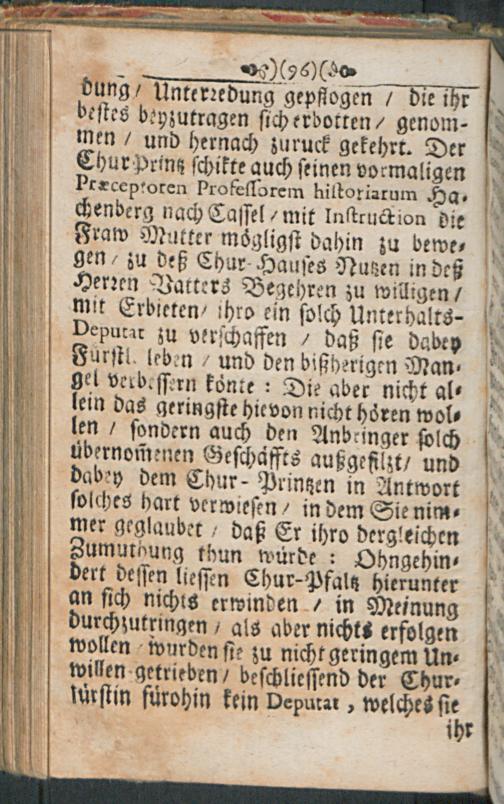 )(96)(
dung / Unterredung gepflogen / die ihr
bestes beyzutragen sich erbotten / genom-
men / und hernach zuruck gekehrt. Der
Chur-Printz schikte auch seinen vormaligen
Præceptoren Professorem historiarum Ha-
chenberg nach Cassel / mit Instruction die
Fraw Mutter mögligst dahin zu bewe-
gen / zu deß Chur-Hauses Nutzen in deß
Herren Vatters Begehren zu willigen /
mit Erbieten / ihro ein solch Unterhalts-
Deputat zu verschaffen / daß sie dabey
Fürstl. leben / und den bißherigen Man-
gel verbessern könte : Die aber nicht al-
lein das geringste hievon nicht hören wol-
len / sondern auch den Anbringer solch
übernom̃enen Geschäffts außgefilzt / und
dabey dem Chur-Printzen in Antwort
solches hart verwiesen / in dem Sie nim-
mer geglaubet / daß Er ihro dergleichen
Zumuthung thun würde : Ohngehin-
dert dessen liessen Chur-Pfaltz hierunter
an sich nichts erwinden / in Meinung
durchzutringen / als aber nichts erfolgen
wollen / wurden sie zu nicht geringem Un-
willen getrieben / beschliessend der Chur-
fürstin fürohin kein Deputat , welches sie
ihr